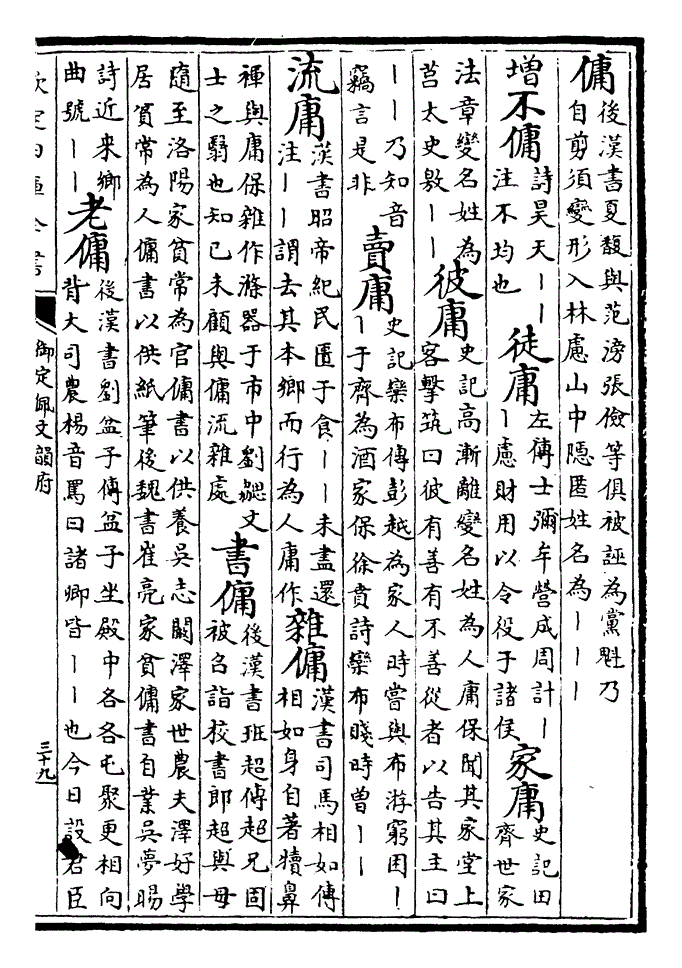 傭後漢書夏馥與范滂張儉等俱被誣為黨魁乃自剪須變形入林慮山中隱匿姓名為｜｜｜
增不傭詩昊天｜｜注不均也徒庸左傳士彌牟營成周計｜｜慮財用以令役于諸侯家庸史記田齊世家
法章變名姓為莒太史敫｜｜彼庸史記高漸離變名姓為人庸保聞其家堂上客擊筑曰彼有善有不善從者以告其主曰
｜｜乃知音竊言是非賣庸史記欒布傳彭越為家人時嘗與布游窮困｜｜于齊為酒家保徐賁詩欒布賤時曾｜｜
流庸漢書昭帝紀民匱于食｜｜未盡還注｜｜謂去其本鄉而行為人庸作雜傭漢書司馬相如傳相如身自著犢鼻
褌與庸保雜作滌器于市中劉勰文士之翳也知已未顧與傭流雜處書傭後漢書班超傳超兄固被召詣校書郎超與母
隨至洛陽家貧常為官傭書以供養吳志闞澤家世農夫澤好學居貧常為人傭書以供紙筆後魏書崔亮家貧傭書自業吳夢暘
詩近来鄉曲號｜｜老傭後漢書劉盆子傳盆子坐殿中各各屯聚更相向背大司農楊音罵曰諸卿皆｜｜也今日設君臣
欽定四庫全書
御定佩文韻府
三十九